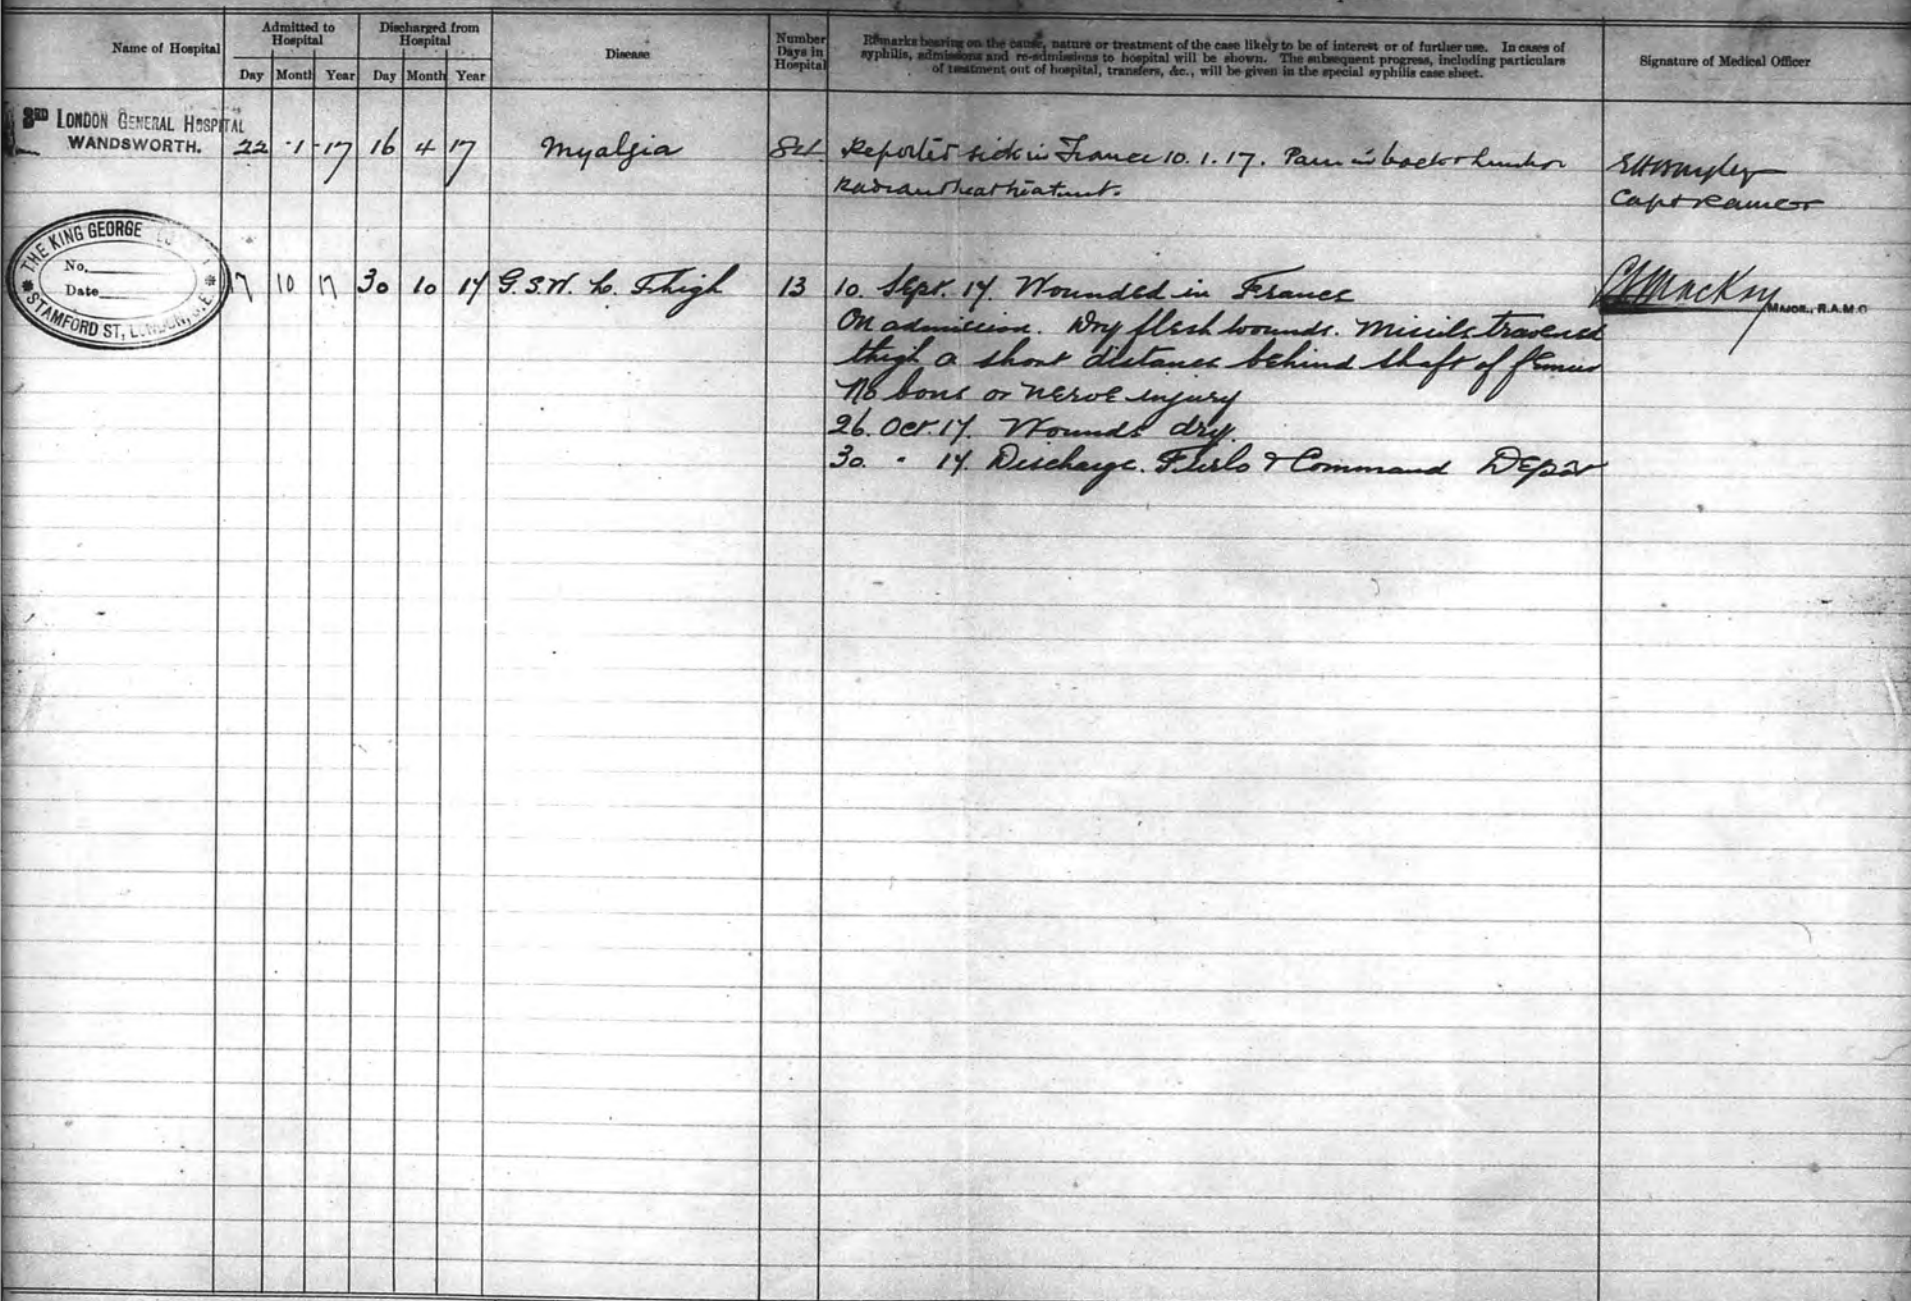 Name of Hospital
Admitted to Hospital
Day Month Year
Discharged from Hospital
Day Month Year
Disease
Number Days in Hospital
Remarks bearing on the cause, nature or treatment of the case likely to be of interest or of further use. In cases of
syphilis, admissions and re-admissions to hospital will be shown. The subsequent progress, including particulars
of treatment out of hospital, transfers, &c., will be given in the special syphilis case sheet.
Signature of Medical Officer
3RD LONDON GENERAL HOSPITAL
WANDSWORTH.
22 1 17 16 4 17 Myalgia 84 Reported sick in France 10.1.17. Pain in back &
Radiant heat treatment.
Capt RAMC
THE KING GEORGE
No.
Date
STAMFORD ST, LONDON, S.E.
7 10 17 30 10 17 G.S.W. L. Thigh 13 10. Sept. 17. Wounded in France
MacKay
MAJOR, R.A.M.C
On admission. Dry flesh wounds. Missile traversed
thigh a short distance behind shaft of femur
No bone or nerve injury
26. Oct. 17. Wounds dry.
30. " 17. Discharge. Furlo & Command Depôt